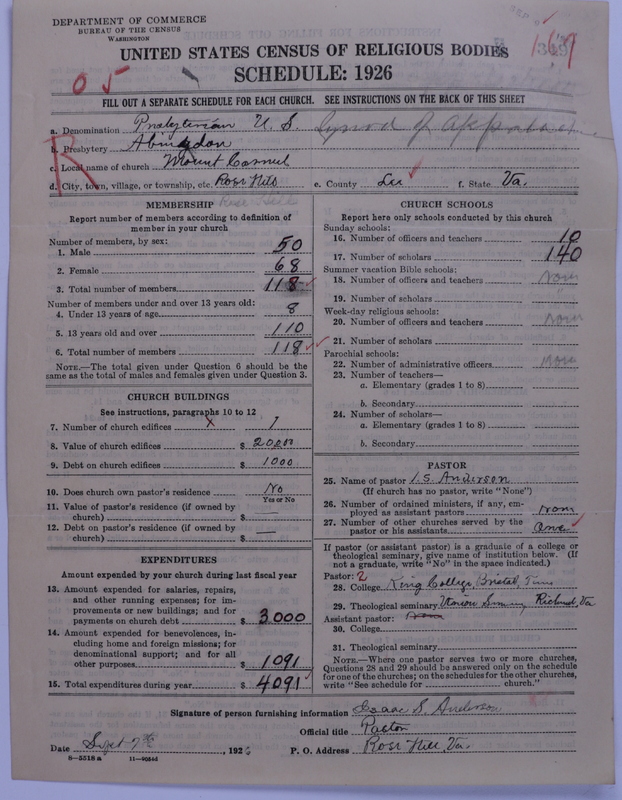 DEPARTMENT OF COMMERCE
BUREAU OF THE CENSUS
WASHINGTON
UNITED STATES CENSUS OF RELIGIOUS BODIES
SCHEDULE: 1926
05
FILL OUT A SEPARATE SCHEDULE FOR EACH CHURCH. SEE INSTRUCTIONS ON THE BACK OF THIS SHEET
a. Denomination Presbyterian U. S. Synod of Appalachia
b. Presbytery Abingdon
c. Local name of church Mount Carmel
d. City, town, village, or township, etc. Rose Hill e. County Lee f. State Va.
Rose Hill
R
MEMBERSHIP
Report number of members according to definition of
member in your church
Number of members, by sex:
1. Male 50
2. Female 68
3. Total number of members 118
Number of members under and over 13 years old:
4. Under 13 years of age 8
5. 13 years old and over 110
6. Total number of members 118
NOTE.—The total given under Question 6 should be
same as the total of males and females given under Question 3.
CHURCH BUILDINGS
See instructions, paragraphs 10 to 12
7. Number of church edifices 1
8. Value of church edifices $ 20,000
9. Debt on church edifices $ 1000
10. Does church own pastor's residence No
Yes or No
11. Value of pastor's residence (if owned by
church) $ —
12. Debt on pastor's residence (if owned by
church) $ —
EXPENDITURES
Amount expended by your church during last fiscal year
13. Amount expended for salaries, repairs,
and other running expenses; for im-
provements or new buildings; and for
payments on church debt $ 3000
14. Amount expended for benevolences, in-
cluding home and foreign missions; for
denominational support; and for all
other purposes $ 1091
15. Total expenditures during year $ 4091
CHURCH SCHOOLS
Report here only schools conducted by this church
Sunday schools:
16. Number of officers and teachers 10
17. Number of scholars 140
Summer vacation Bible schools:
18. Number of officers and teachers None
19. Number of scholars
Week-day religious schools:
20. Number of officers and teachers None
21. Number of scholars
Parochial schools:
22. Number of administrative officers None
23. Number of teachers—
a. Elementary (grades 1 to 8)
b. Secondary
24. Number of scholars—
a. Elementary (grades 1 to 8)
b. Secondary
PASTOR
25. Name of pastor I. S. Anderson
(If church has no pastor, write "None")
26. Number of ordained ministers, if any, em-
ployed as assistant pastors None
27. Number of other churches served by the
pastor or his assistants One
If pastor (or assistant pastor) is a graduate of a college or
theological seminary, give name of institution below. (If
not a graduate, write "No" in the space indicated.)
Pastor: 2
28. College King College, Bristol, Tenn
29. Theological seminary Union Seminary Richmond, Va
Assistant pastor: None
30. College
31. Theological seminary
NOTE.—Where one pastor serves two or more churches,
Questions 28 and 29 should be answered only on the schedule
for one of the churches; on the schedules for the other churches,
write "See schedule for church."
Signature of person furnishing information Isaac S. Anderson
Official title Pastor
Date Sept 7th, 1926 P. O. Address Rose Hill, Va.
8-5518 a